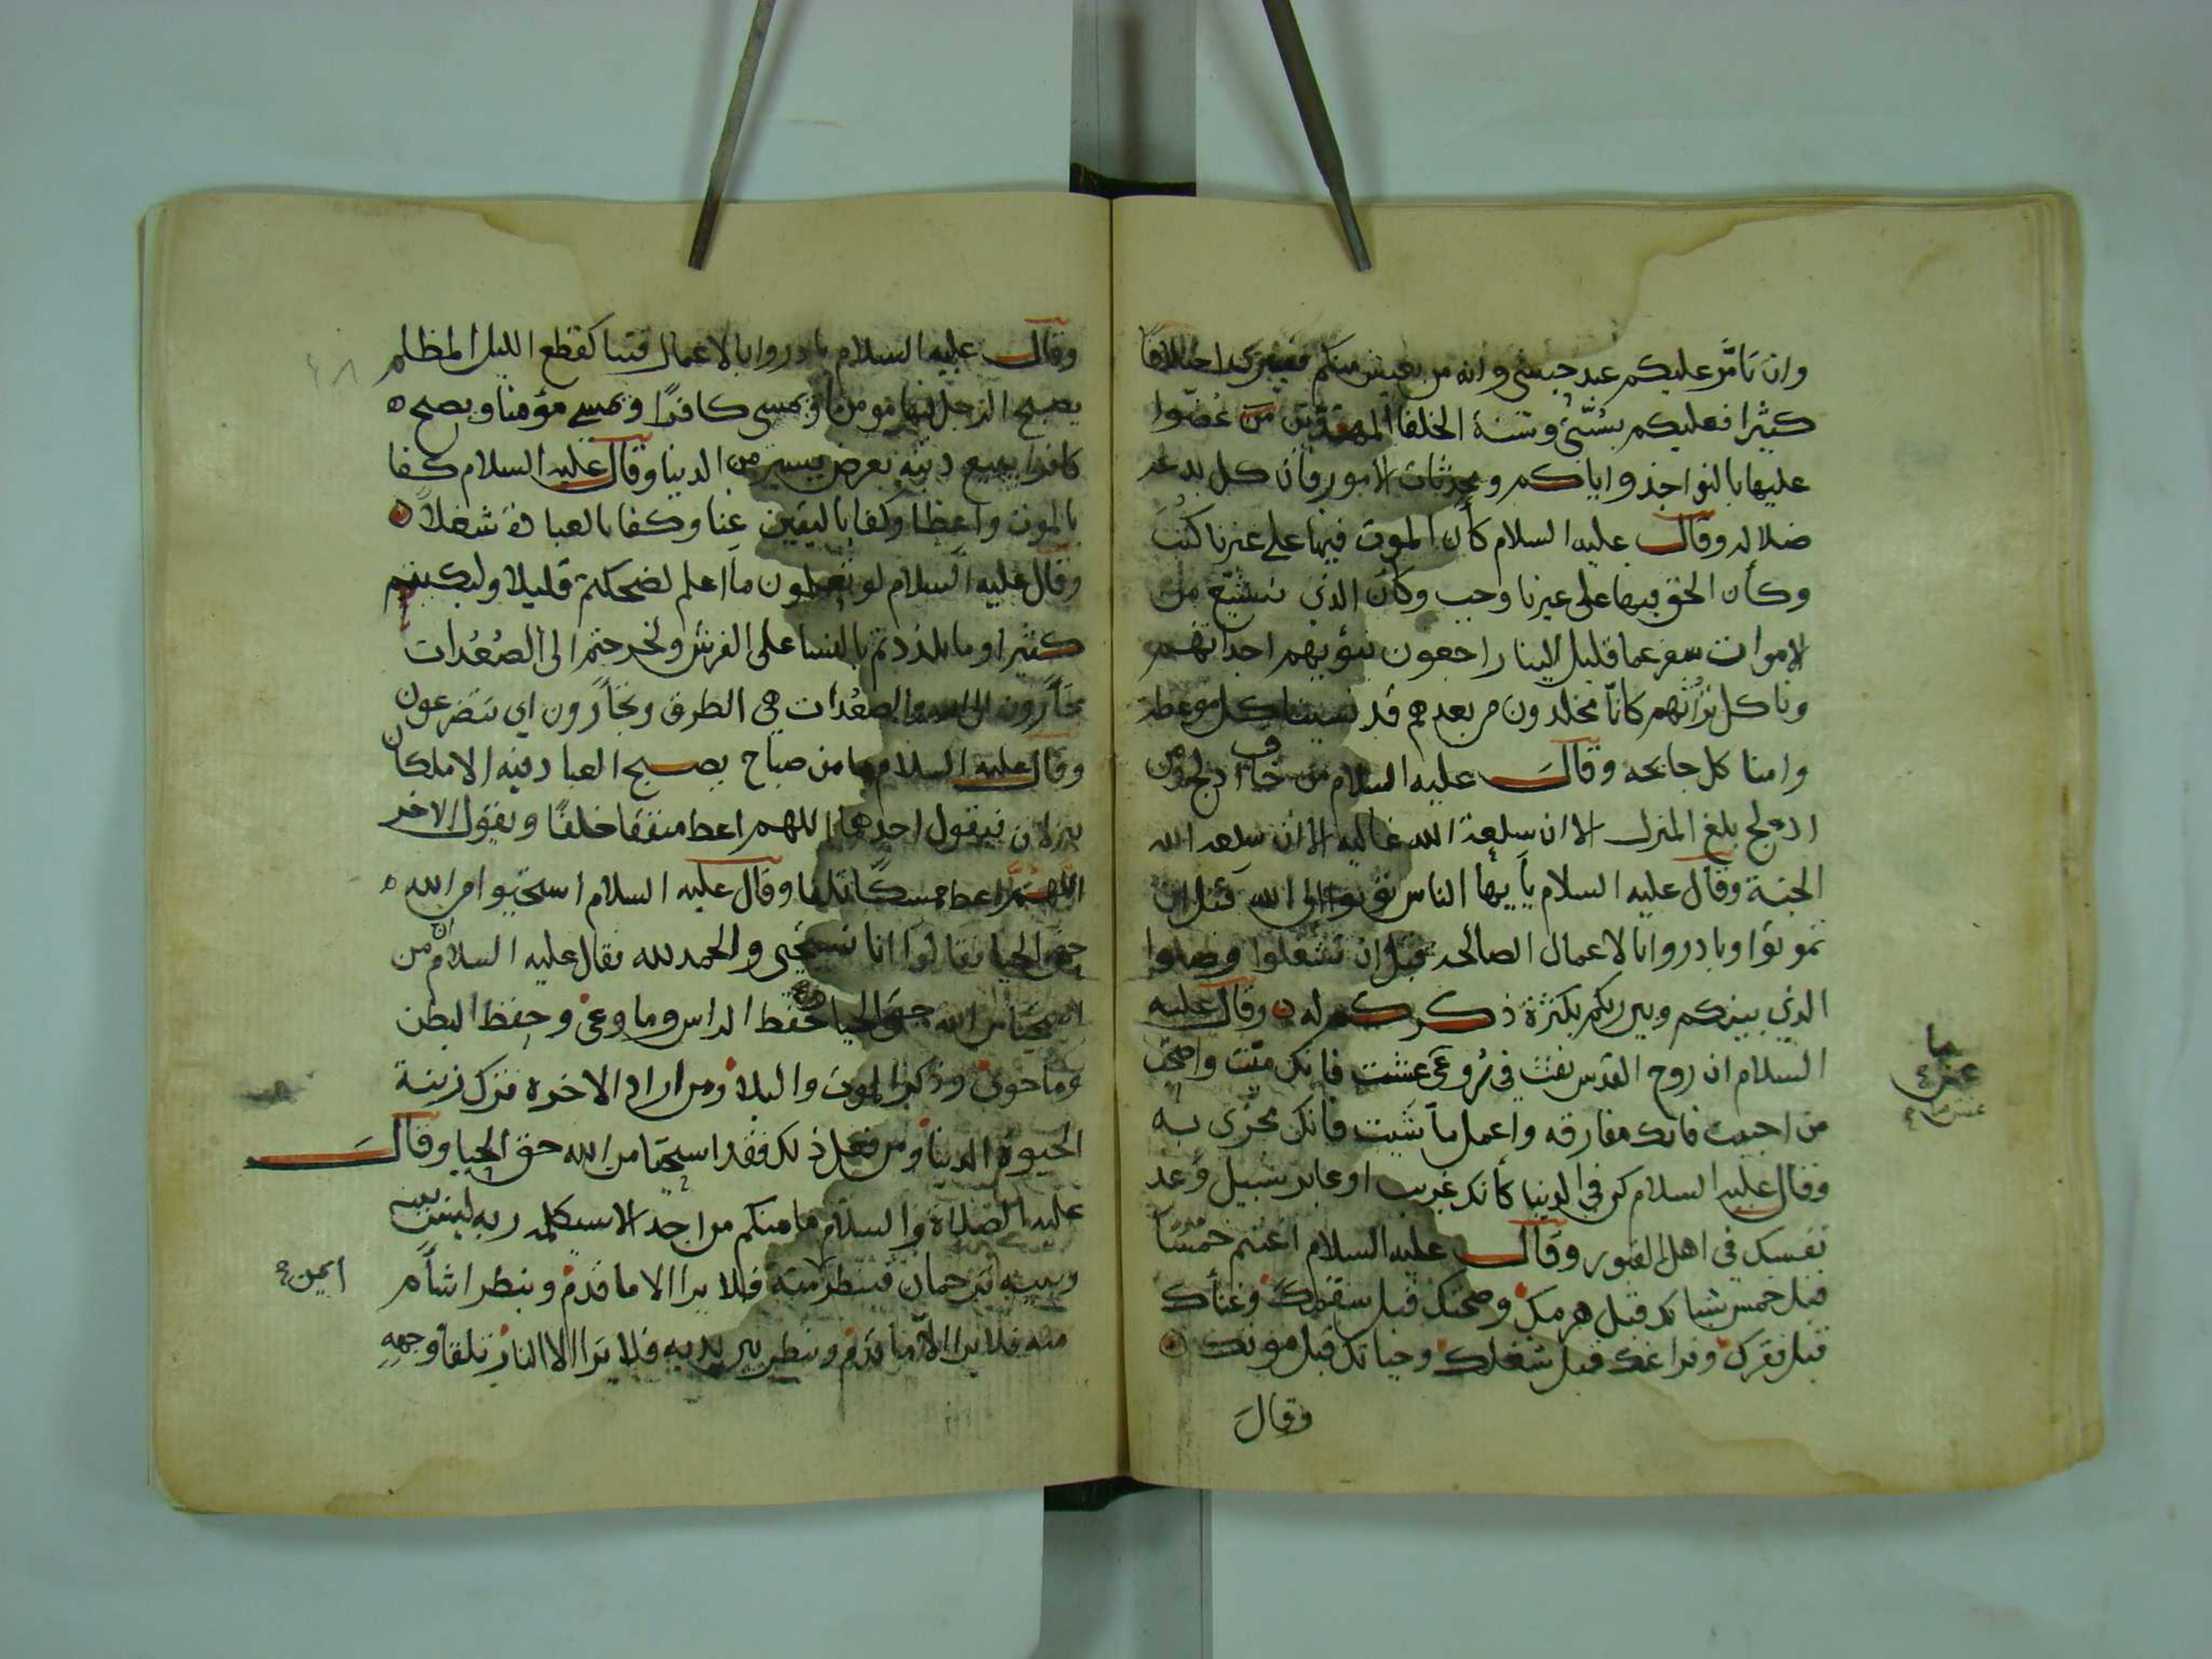 وان تامّر عليكم عبد حبشي وانه من يعيش منكم فسيرى اختلافا
كثيرا فعليكم بسُنّتي وسنة الخلفا المهتدين من عُضّوا
عليها بالنواجذ واياكم ومحدثات الامور فان كل بدعة
ضلاله وقال عليه السلام كأن الموت فيها على غيرنا كُتب
وكأن الحق فيها على غيرنا وجب وكأن الذي نشيّع من
الاموات سفر عما قليل الينا راجعون نبؤيهم اجداثهم
وناكل تراثهم كانّا مخلدون من بعدهم قد نسينا كل موعظه
وامنا كل جائحه وقال عليه السلام من خاف ادلج ومن
ادلج بلغ المنزل الا ان سلعة الله غاليه الا ان سلعة الله
الجنة وقال عليه السلام يأيها الناس توبوا الى الله قبل ان
تموتوا وبادروا بالاعمال الصالحة قبل ان تشغلوا وصلوا
الذي بينكم وبين ربكم بكثرة ذكركم له وقال عليه
السلام ان روح القدس نفث في رُوعي عش ما شيت فانك ميّت واحبب
من احببت فانك مفارقه واعمل ما شيت فانك مجزى به
وقال عليه السلام كن في الدنيا كأنك غريب او عابر سبيل وعد
نفسك في اهل القبور وقال عليه السلام اغتنم خمسًا
قبل خمس شبابك قبل هرمك وصحتك قبل سقمك وغناك
قبل فقرك وفراغك قبل شغلك وحياتك قبل موتك
وقال
وقال عليه السلام بادروا بالاعمال فتنا كقطع الليل المظلم
يصبح الرجل فيها مومنا ويمسي كافرًا ويمسي مؤمنا ويصبح
كافرا يبيع دينه بعرض يسير من الدنيا وقال عليه السلام كفا
بالموت واعظا وكفا باليقين غنا وكفا بالعبادة شغلاً
وقال عليه السلام لو تعلمون ما اعلم لضحكتم قليلا ولبكيتم
كثيرا وما تلذذتم بالنسا على الفرش ولخرجتم الى الصُعُدات
تجأرون الى الله والصعُدات هي الطرق وتجأرون اي تتضرعون
وقال عليه السلام ما من صباح يصبح العباد فيه الا ملكان
ينزلان فيقول احدهما اللهم اعط منفقا خلفًا ويقول الاخر
اللهمّ اعط ممسكًا تلفا وقال عليه السلام استحيوا من الله
حق الحيا فقالوا انا نستحيي والحمد لله فقال عليه السلام ان من
استحيا من الله حق الحيا حفظ الراس وما وعى وحفظ البطن
وما حوى وذكر الموت والبلا ومن اراد الاخره ترك زينة
الحيوة الدنيا ومن فعل ذلك فقد استحيا من الله حق الحيا وقال
عليه الصلاة والسلام ما منكم من احد الا سيكلمه ربه ليس بينه
وبينه ترجمان فينظر منه فلا يرا الا ما قدم وينظر اشأم
ايمن
منه فلا يرا الاّ ما قدم وينظر بين يديه فلا يرا الا النار تلقا وجهه